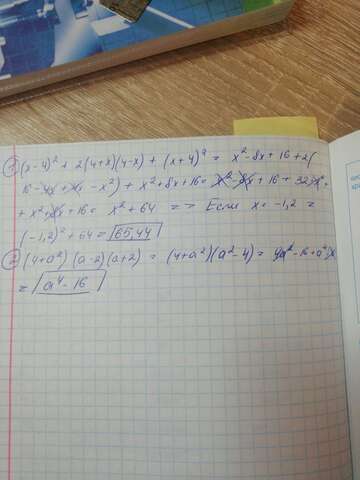 ① (x-4)² + 2(4+x)(4-x) + (x+4)² = x² - 8x + 16 + 2(
16 - 4x + 4x - x²) + x² + 8x + 16 = x² - 8x + 16 + 32
+ x² + 8x + 16 = x² + 64 => Если x = -1,2 =
(-1,2)² + 64 = 65,44
② (4+a²)(a-2)(a+2) = (4+a²)(a²-4) = 4a² - 16 + a⁴
= a⁴ - 16